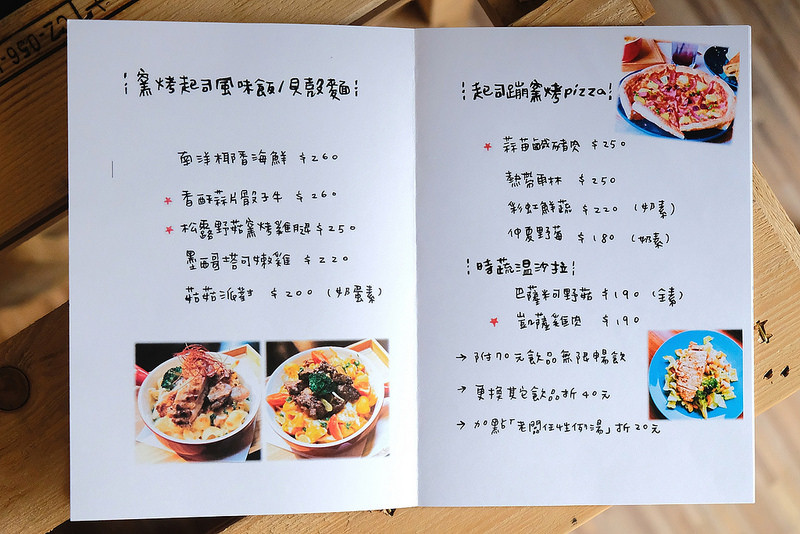 窯烤起司風味飯/貝殼麵
南洋椰香海鮮 $260
★ 香酥蒜片骰子牛 $260
★ 松露野菇窯烤雞腿 $250
墨西哥塔可嫩雞 $220
菇菇派對 $200 (奶蛋素)
起司蹦窯烤pizza
★ 蒜苗鹹豬肉 $250
熱帶雨林 $250
彩虹鮮蔬 $220 (奶素)
仲夏野菇 $180 (奶素)
時蔬溫沙拉
巴薩米可野菇 $190 (全素)
★ 凱薩雞肉 $190
→ 附70元飲品無限暢飲
→ 更換其它飲品折40元
→ 加點「老闆任性例湯」折20元